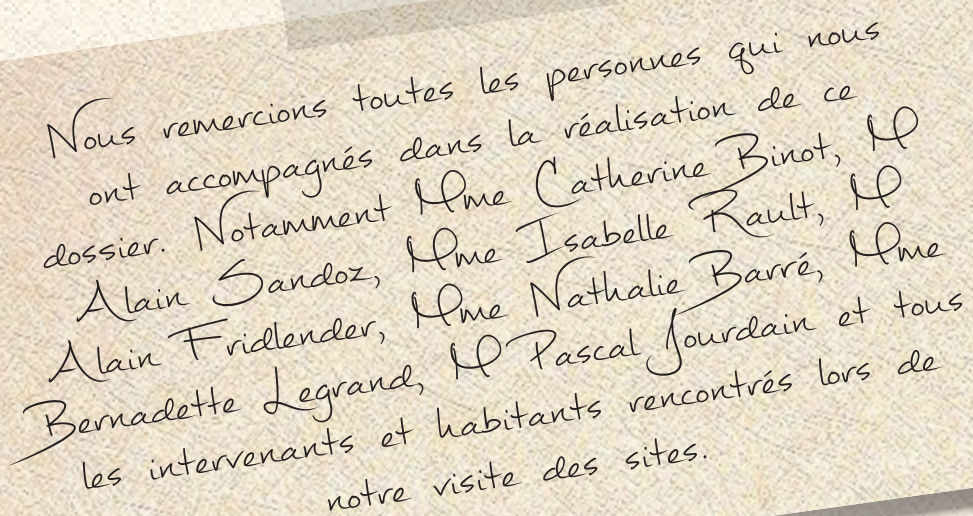 Nous remercions toutes les personnes qui nous
ont accompagnés dans la réalisation de ce
dossier. Notamment Mme Catherine Binot, M
Alain Sandoz, Mme Isabelle Rault, M
Alain Fridlender, Mme Nathalie Barré, Mme
Bernadette Legrand, M Pascal Jourdain et tous
les intervenants et habitants rencontrés lors de
notre visite des sites.